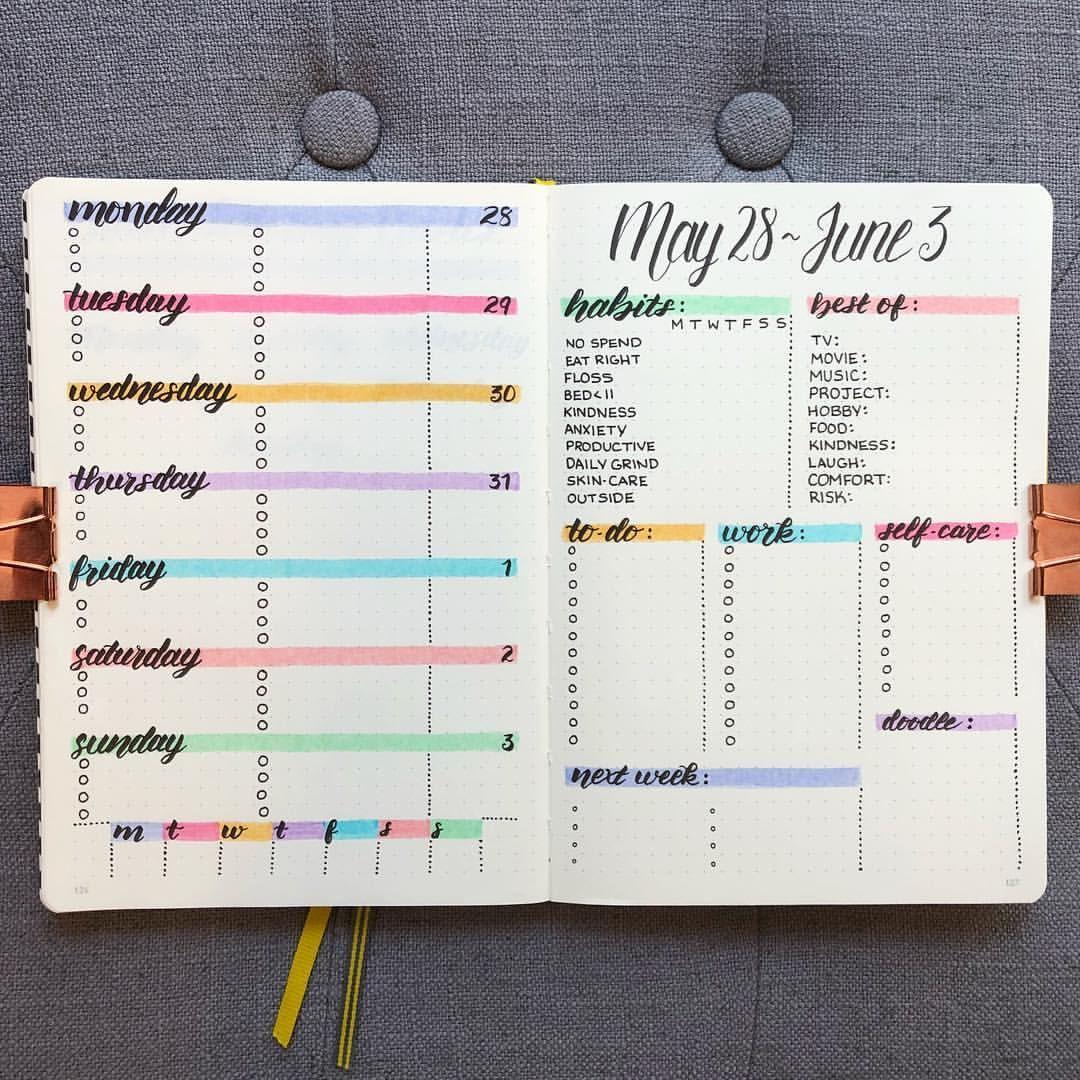 monday 28
tuesday 29
wednesday 30
thursday 31
friday 1
saturday 2
sunday 3
m t w t f s s
126
May 28~June 3
habits:
M T W T F S S
NO SPEND
EAT RIGHT
FLOSS
BED<11
KINDNESS
ANXIETY
PRODUCTIVE
DAILY GRIND
SKIN-CARE
OUTSIDE
best of:
TV:
MOVIE:
MUSIC:
PROJECT:
HOBBY:
FOOD:
KINDNESS:
LAUGH:
COMFORT:
RISK:
to-do:
work:
self-care:
doodle:
next week:
127